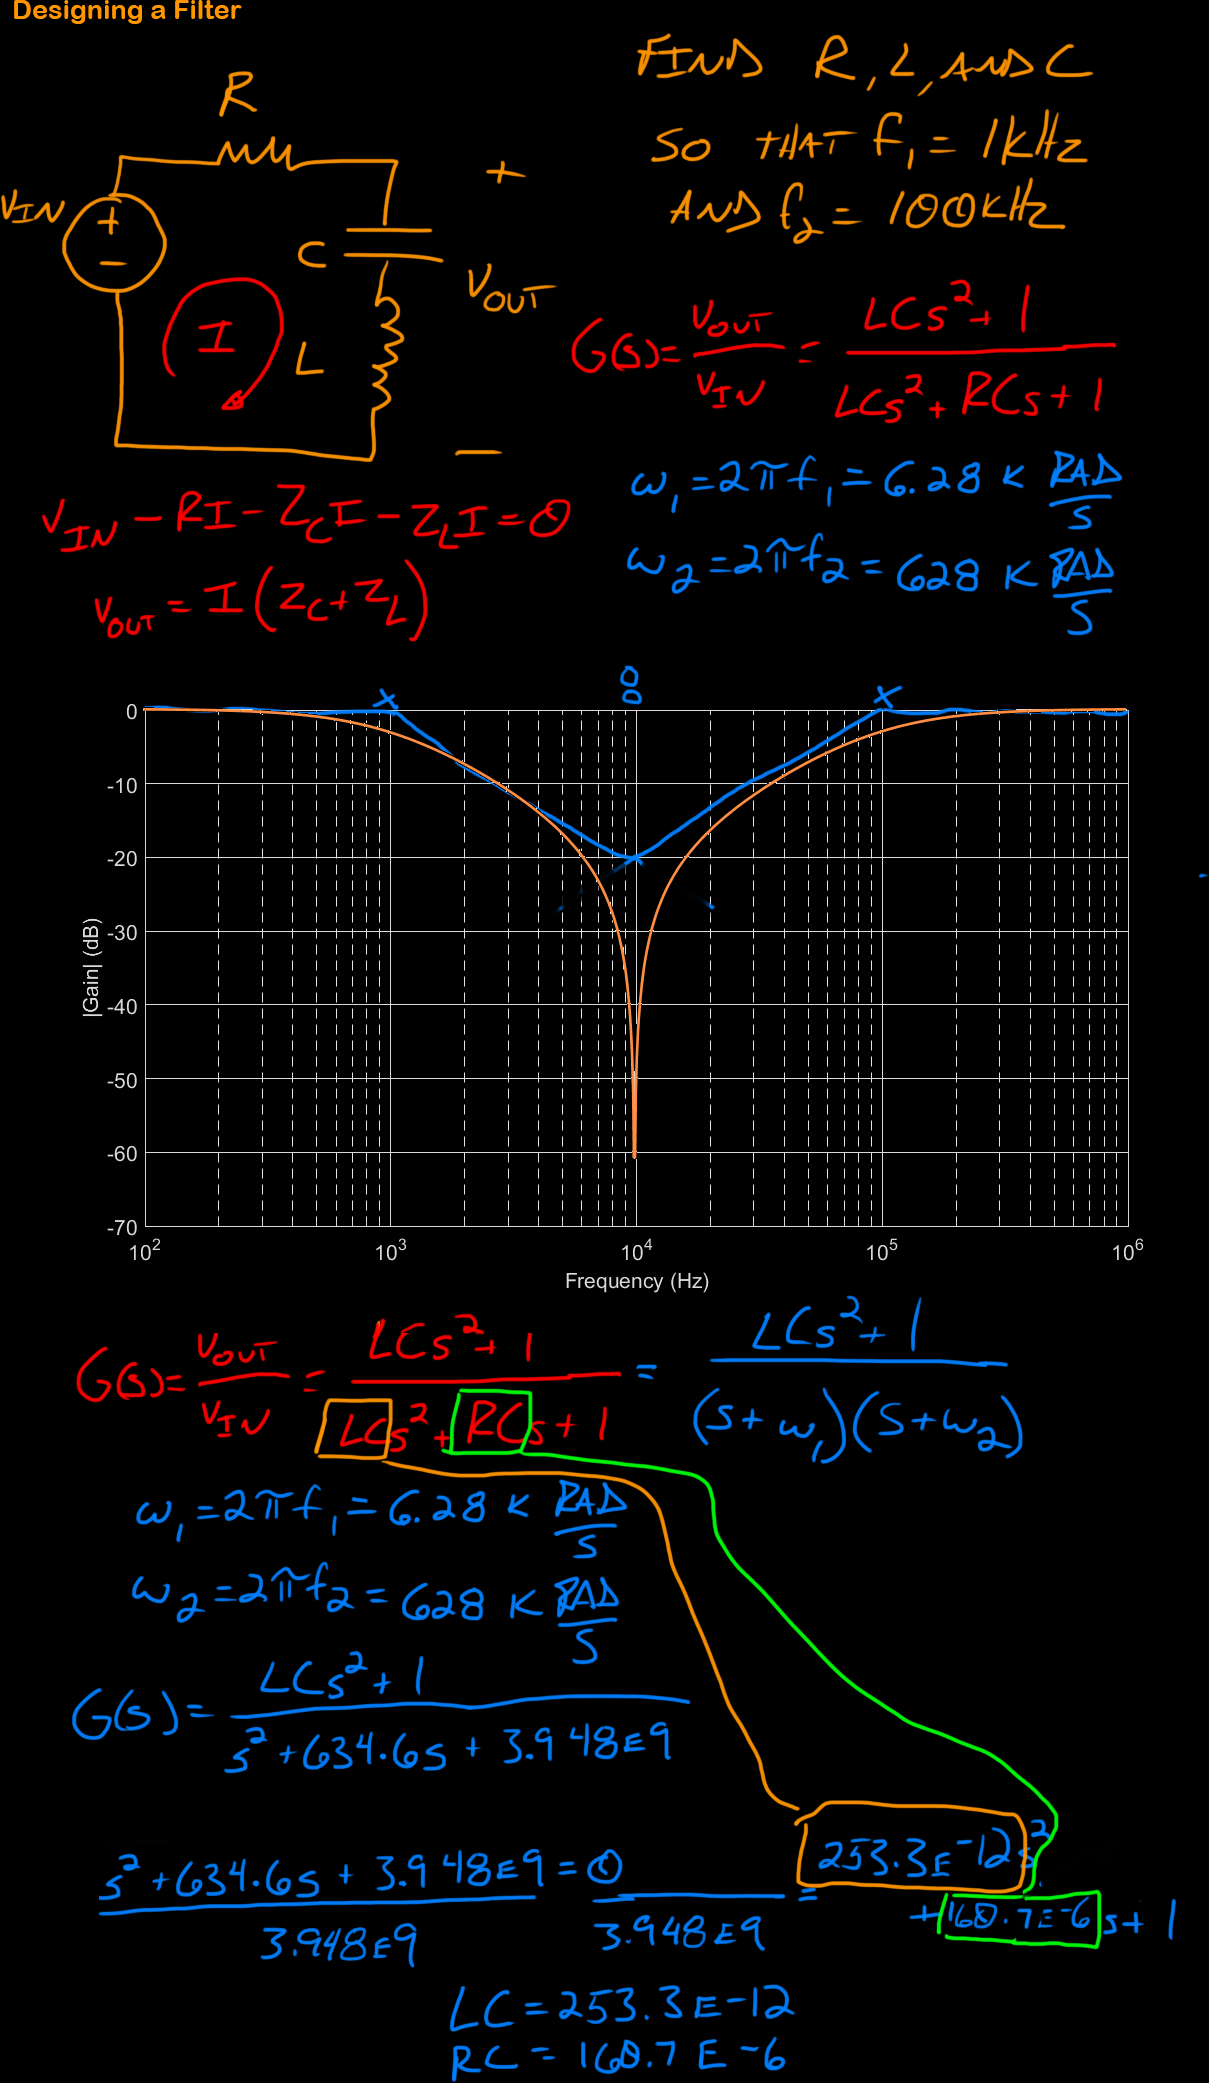 Designing a Filter
FIND R, L, AND C
SO THAT f₁ = 1kHz
AND f₂ = 100kHz
R
VIN
+
−
C
L
I
+
VOUT
−
G(s) = VOUT/VIN = (LCs² + 1)/(LCs² + RCs + 1)
ω₁ = 2πf₁ = 6.28 K RAD/S
ω₂ = 2πf₂ = 628 K RAD/S
VIN − RI − ZCI − ZLI = 0
VOUT = I(ZC + ZL)
X OO X
0
-10
-20
-30
-40
-50
-60
-70
|Gain| (dB)
10² 10³ 10⁴ 10⁵ 10⁶
Frequency (Hz)
G(s) = VOUT/VIN = (LCs² + 1)/(LCs² + RCs + 1) = (LCs² + 1)/((s + ω₁)(s + ω₂))
ω₁ = 2πf₁ = 6.28 K RAD/S
ω₂ = 2πf₂ = 628 K RAD/S
G(s) = (LCs² + 1)/(s² + 634.6s + 3.948E9)
(s² + 634.6s + 3.948E9)/3.948E9 = 0/3.948E9 = 253.3E-12s²
+ 160.7E-6 s + 1
LC = 253.3E-12
RC = 160.7E-6